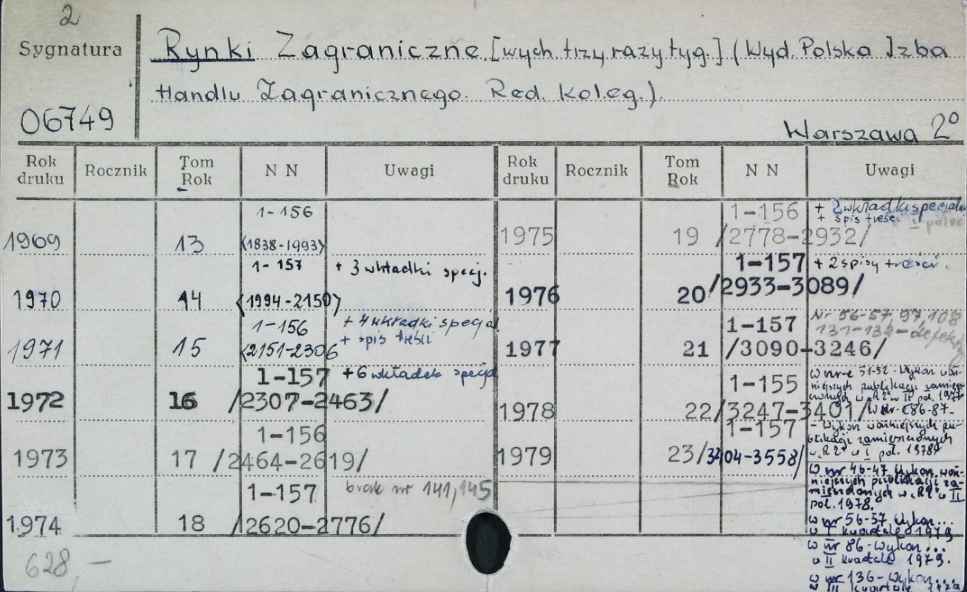 2
Sygnatura
Rynki Zagraniczne [wych. trzy razy tyg.] (Wyd. Polska Izba
Handlu Zagranicznego. Red. koleg.).
06749
Warszawa 2°
Rok druku Rocznik Tom Rok N N Uwagi Rok druku Rocznik Tom Rok N N Uwagi
1969 13 1-156 (1838-1993)
1970 14 1-157 (1994-2150) + 3 wkładki specj.
1971 15 1-156 (2151-2306 + 4 wkładki specjal
+ spis treści
1972 16 1-157 /2307-2463/ + 6 wkładek specjal
1973 17 1-156 /2464-2619/
1974 18 1-157 /2620-2776/ brak nr 141, 145
1975 19 1-156 /2778-2932/ + 2 wkładki specjaln
+ spis treści I
1976 20 1-157 /2933-3089/ + 2 spisy treści.
1977 21 1-157 /3090-3246/ Nr 56-57, 97, 108
131-132-defekty
1978 22 1-155 /3247-3401/ W nr-e 51-52-Wykon waż-
niejszych publikacji zamiesz-
w "RZ" w II pol. 1977
W nr 86-87-
1979 23 1-157 /3404-3558/ - Wykon ważniejszych pu-
blikacji zamieszczonych
w "RZ" w I pol. 1978
W nr 46-47 Wykon. waż-
niejszych publikacji za-
mieszczonych w "RZ" w II
pol. 1978.
W nr 56-57 Wykon...
w I kwartale 1979
W nr 86-Wykon...
w II kwartale 1979.
W nr 136-Wykon...
w III kwartale
628,-